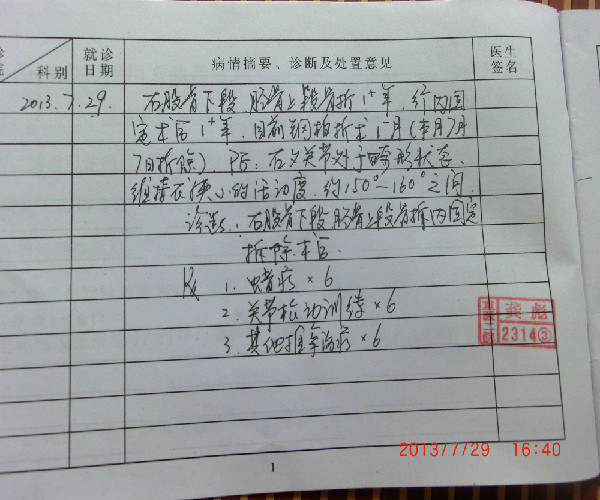 科别
就诊日期
病情摘要、诊断及处置意见
医生签名
2013.7.29.
右股骨下段、胫骨上段骨折1⁺年,行内固
定术后1⁺年,目前钢板拆术1月(本月7月
7日拆除), PE:右关节处于畸形状态,
维持在很小的活动度,约150°~160°之间
诊断:右股骨下段胫骨上段骨折内固定
拆除术后
Rx 1. 疗×6
2. 关节松动训练×6
3. 其他推拿治疗×6
龚彪
2314③
1
2013/7/29 16:40